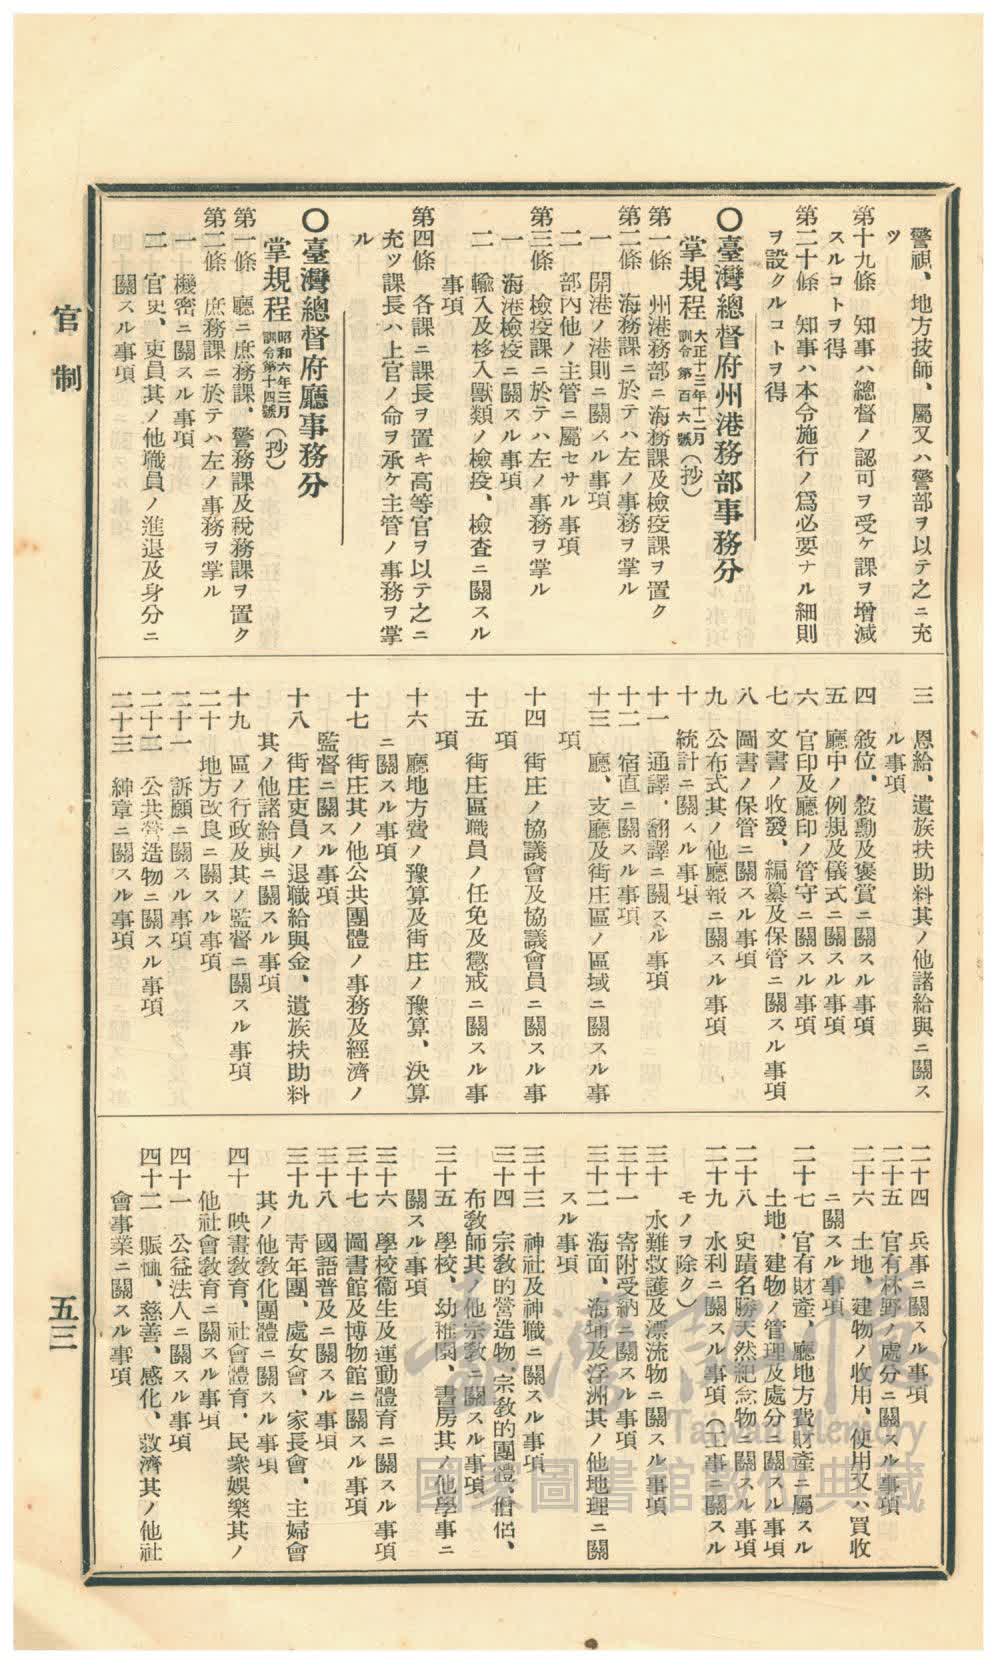 警視、地方技師、屬又ハ警部ヲ以テ之ニ充
ツ
第十九條　知事ハ總督ノ認可ヲ受ケ課ヲ增減
スルコトヲ得
第二十條　知事ハ本令施行ノ爲必要ナル細則
ヲ設クルコトヲ得
〇臺灣總督府州港務部事務分
掌規程 大正十三年十二月 訓令第百六號 (抄)
第一條　州港務部ニ海務課及檢疫課ヲ置ク
第二條　海務課ニ於テハ左ノ事務ヲ掌ル
一　開港ノ港則ニ關スル事項
二　部內他ノ主管ニ屬セサル事項
第三條　檢疫課ニ於テハ左ノ事務ヲ掌ル
一　海港檢疫ニ關スル事項
二　輸入及移入獸類ノ檢疫、檢査ニ關スル
事項
第四條　各課ニ課長ヲ置キ高等官ヲ以テ之ニ
充ツ課長ハ上官ノ命ヲ承ケ主管ノ事務ヲ掌
ル
〇臺灣總督府廳事務分
掌規程 昭和六年三月 訓令第十四號 (抄)
第一條　廳ニ庶務課、警務課及稅務課ヲ置ク
第二條　庶務課ニ於テハ左ノ事務ヲ掌ル
一　機密ニ關スル事項
二　官吏、吏員其ノ他職員ノ進退及身分ニ
關スル事項
三　恩給、遺族扶助料其ノ他諸給與ニ關ス
ル事項
四　敍位、敍勳及褒賞ニ關スル事項
五　廳中ノ例規及儀式ニ關スル事項
六　官印及廳印ノ管守ニ關スル事項
七　文書ノ收發、編纂及保管ニ關スル事項
八　圖書ノ保管ニ關スル事項
九　公布式其ノ他廳報ニ關スル事項
十　統計ニ關スル事項
十一　通譯、翻譯ニ關スル事項
十二　宿直ニ關スル事項
十三　廳、支廳及街庄區ノ區域ニ關スル事
項
十四　街庄ノ協議會及協議會員ニ關スル事
項
十五　街庄區職員ノ任免及懲戒ニ關スル事
項
十六　廳地方費ノ豫算及街庄ノ豫算、決算
ニ關スル事項
十七　街庄其ノ他公共團體ノ事務及經濟ノ
監督ニ關スル事項
十八　街庄吏員ノ退職給與金、遺族扶助料
其ノ他諸給與ニ關スル事項
十九　區ノ行政及其ノ監督ニ關スル事項
二十　地方改良ニ關スル事項
二十一　訴願ニ關スル事項
二十二　公共營造物ニ關スル事項
二十三　紳章ニ關スル事項
二十四　兵事ニ關スル事項
二十五　官有林野ノ處分ニ關スル事項
二十六　土地、建物ノ收用、使用又ハ買收
ニ關スル事項
二十七　官有財產、廳地方費財產ニ屬スル
土地、建物ノ管理及處分ニ關スル事項
二十八　史蹟名勝天然紀念物ニ關スル事項
二十九　水利ニ關スル事項(工事ニ關スル
モノヲ除ク)
三十　水難救護及漂流物ニ關スル事項
三十一　寄附受納ニ關スル事項
三十二　海面、海埔及浮洲其ノ他地理ニ關
スル事項
三十三　神社及神職ニ關スル事項
三十四　宗敎的營造物、宗敎的團體、僧侶、
布敎師其ノ他宗敎ニ關スル事項
三十五　學校、幼稚園、書房其ノ他學事ニ
關スル事項
三十六　學校衞生及運動體育ニ關スル事項
三十七　圖書館及博物館ニ關スル事項
三十八　國語普及ニ關スル事項
三十九　靑年團、處女會、家長會、主婦會
其ノ他敎化團體ニ關スル事項
四十　映畫敎育、社會體育、民衆娛樂其ノ
他社會敎育ニ關スル事項
四十一　公益法人ニ關スル事項
四十二　賑恤、慈善、感化、救濟其ノ他社
會事業ニ關スル事項
官制
五三
臺灣記憶
Taiwan Memory
國家圖書館數位典藏